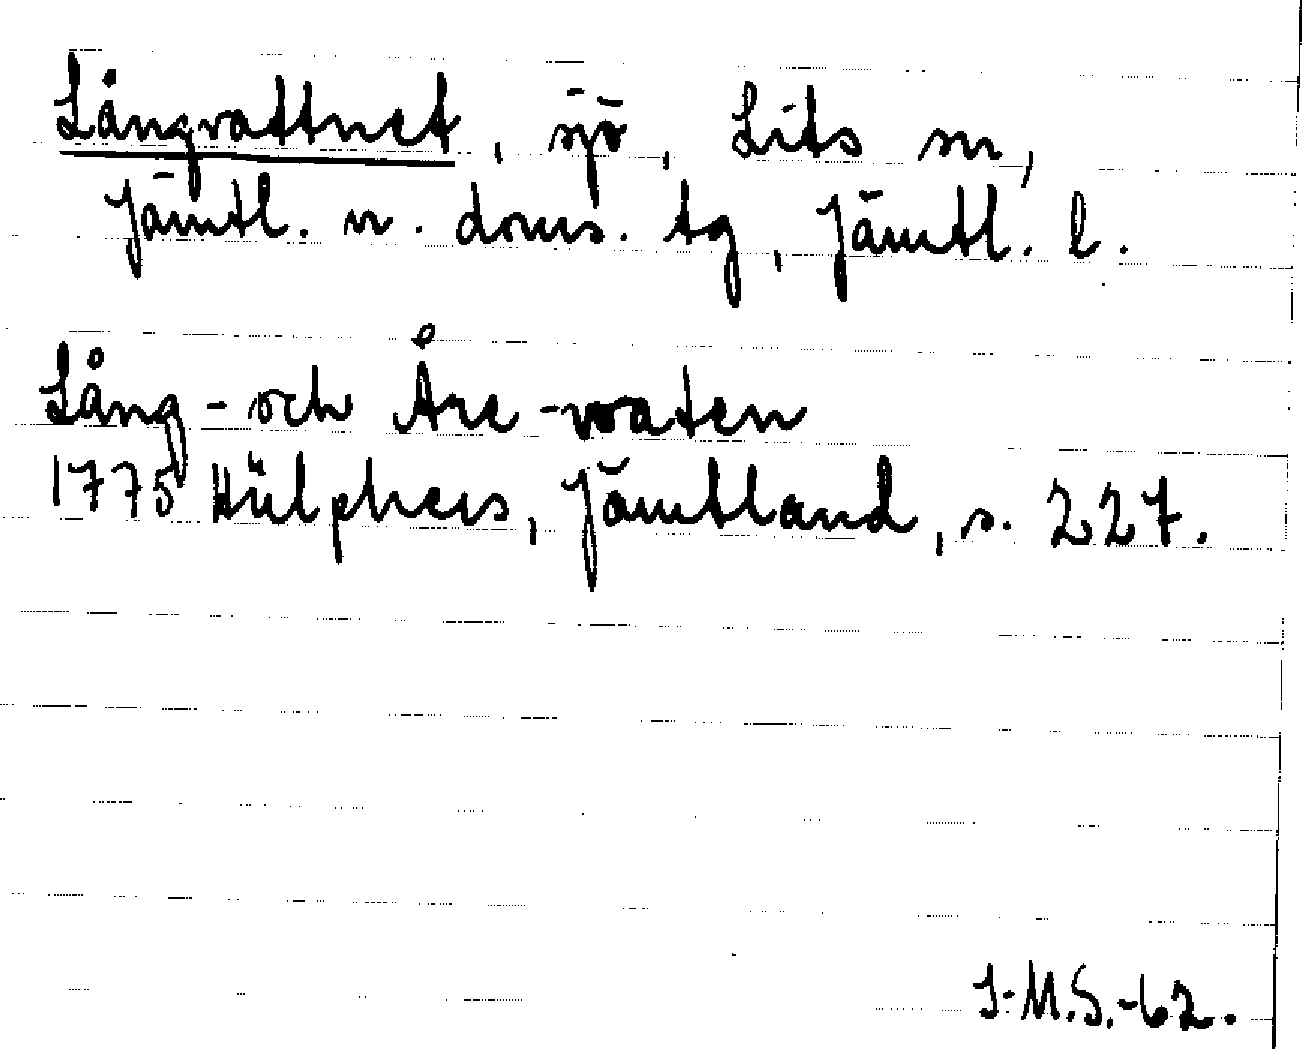 Långvattnet, sjö, Lits sn,
Jämtl. n. doms. tg, Jämtl. l.
Lång- och Åre-waten
1775 Hülphers, Jämtland, s. 227.
I-M.S.-62.